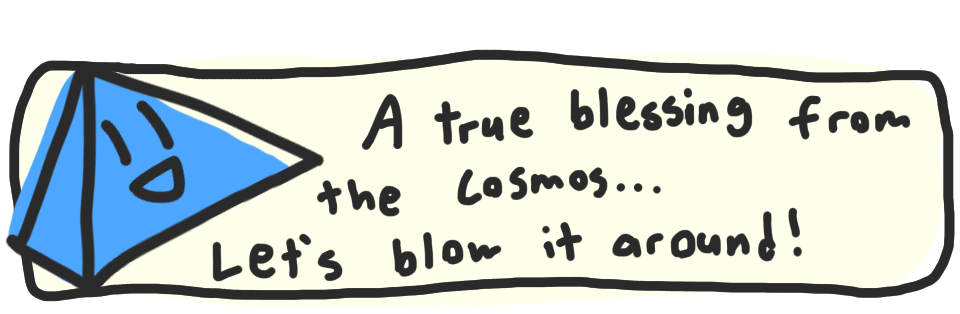 A true blessing from
the cosmos...
Let's blow it around!